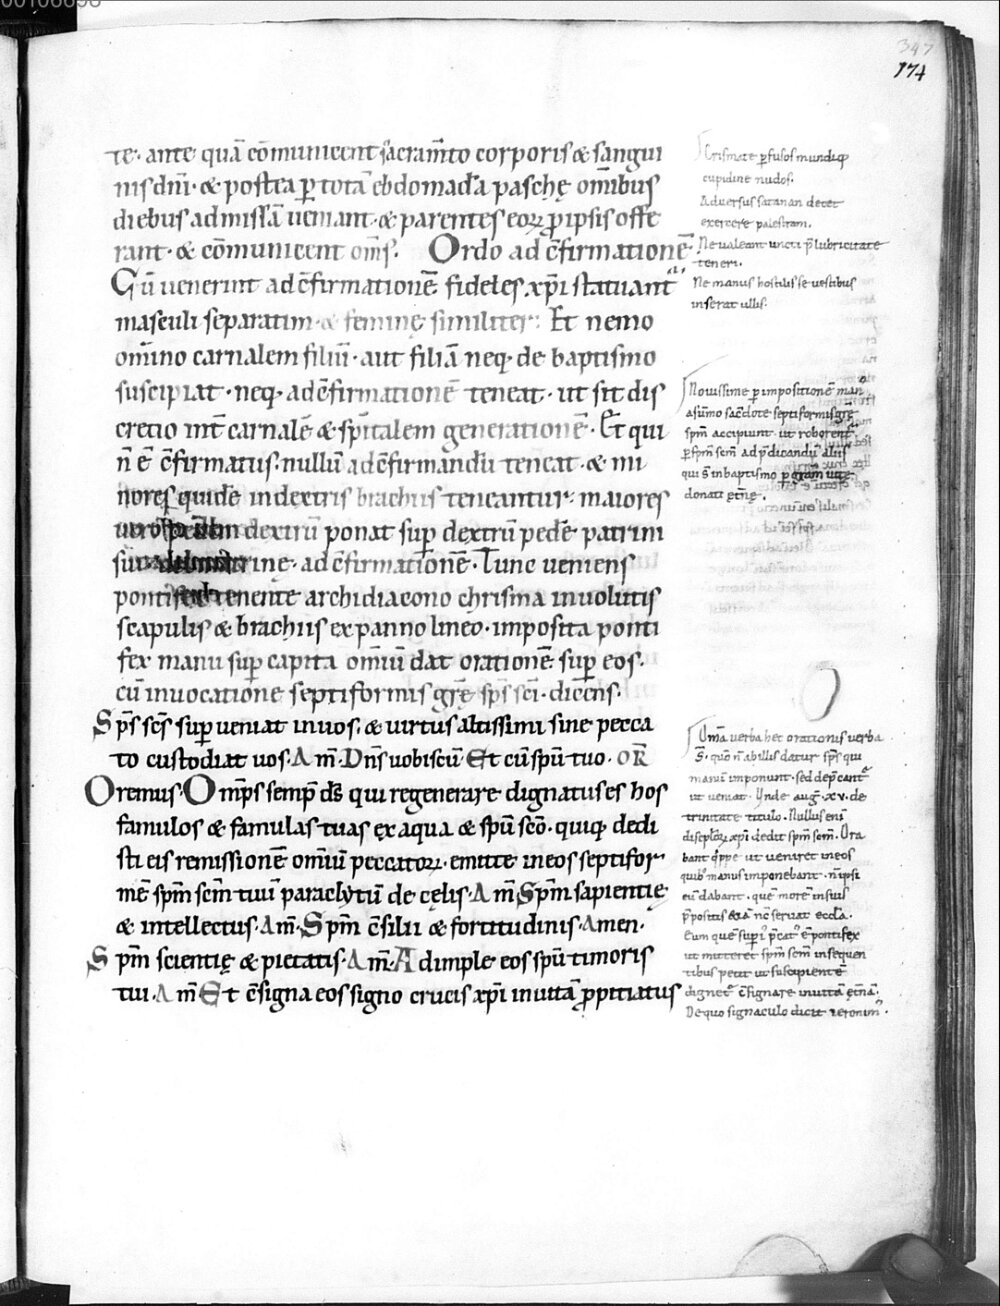 00106698
347
174
te· ante quā cōmunicent sacram̄to corporis & sangui
nis dn̄i· & postea p̱ totā ebdomadā paschę om̄ibus
diebus ad missā ueniant· & parentes eoꝝ ꝓ ipsis offe
rant· & cōmunicent om̄s. Ordo ad c̄firmationē·
Cū uenerint ad c̄firmationē fideles xp̄i statuant᷑
masculi separatim· & feminę similiter· Et nemo
om̄ino carnalem filiū· aut filiā neq· de baptismo
suscipiat· neq· ad c̄firmationē teneat· ut sit dis
cretio int̄ carnalē & sp̄italem generationē· Et qui
n̄ ē c̄firmatus· nullū ad c̄firmandū teneat· & mi
nores quidē in dextris brachiis teneantur· maiores
uero dextrū ponat sup̱ dextrū pedē patrini
sui ad c̄firmationē· Tunc ueniens
pontifex tenente archidiacono chrisma inuolutis
scapulis & brachiis ex panno lineo· imposita ponti
fex manu sup̱ capita om̄iū dat orationē sup̱ eos·
cū inuocatione septiformis gr̄ę sp̄s sc̄i· dicens·
Sp̄s sc̄s sup̱ueniat in uos· & uirtus altissimi sine pecca
to custodiat uos· Am̄· Dn̄s uobiscū Et cū sp̄u tuo· OR̄
Oremus· Om̄ps semp̱ ds̄ qui regenerare dignatus es hos
famulos & famulas tuas ex aqua & sp̄u sc̄o· quiq· dedi
sti eis remissionē om̄iū peccatoꝝ· emitte in eos septifor
mē sp̄m sc̄m tuū paraclytū de cęlis· Am̄ Sp̄m sapientię
& intellectus· Am̄· Sp̄m c̄silii & fortitudinis· Amen·
Sp̄m scientię & pietatis· Am̄· Adimple eos sp̄u timoris
tui· Am̄ Et c̄signa eos signo crucis xp̄i in uitā ꝓpitiatus
Crismate p̱fusos mundiq
cupidine nudos·
Aduersus satanan decet
exercere palestram·
Ne ualeant uncti p̄ lubricitate
teneri·
Ne manus hostilis se uestibus
inserat ullis·
Nouissime p̱ impositionē man᷑
a sūmo sac̄dote septiformis gr̄ę
sp̄m accipiunt ut roborent᷑
p̱ sp̄m sc̄m ad p̄dicandū aliis
qui s̄ in baptismo p̱ gr̄am uitę
donati ęt̄nę·
Om̄a uerba hec orationis uerba
s̄· quo n̄ ab illis datur sp̄s qui
manū imponunt· sed dep̄cant᷑
ut ueniat· Unde aug̅· xv· de
trinitate titulo· Nullus eni
discip̱loꝝ xp̄i dedit sp̄m sc̄m· Ora
bant q̇ppe ut ueniret in eos
quib᷒ manus imponebant· n̄ ipsi
eū dabant· quē morē in suis
p̄positis nc̄ seruat eccl̄a·
ut mitteret sp̄m sc̄m in sequen
tibus petit ut suscipientē
dignet᷑ c̄signare in uitā ęt̄nā·
De quo signaculo dicit ieronim᷒·